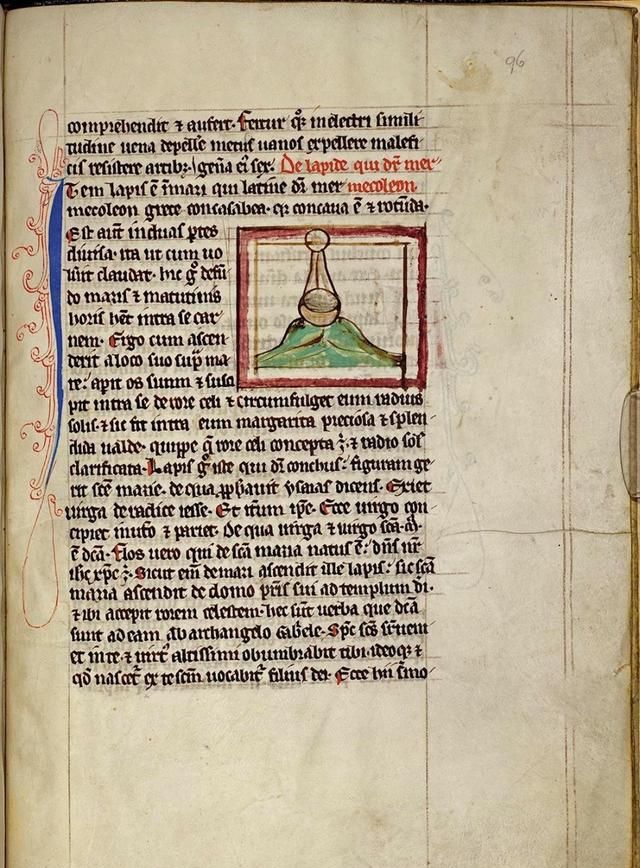 96
comprehendit ⁊ aufert. Fertur qͦꝫ in electri simili
tudine uena depelle metus uanos expellere malefi
cis resistere artibꝫ. De lapide qui dr̄ mer
Item lapis ē ī mari qui latine dr̄ mer mecoleon.
mecoleon grece concasabea. qꝛ concaua ē ⁊ rotūda.
Est aut̄ in duas ꝑtes
diuisa. ita ut cum uo
lūit claudat. hic gͦ ī defū
do maris ⁊ matutinis
horis hēt intra se car
nem. Ergo cum ascen
derit a loco suo suꝑ ma
re: aꝑit os suum ⁊ susci
pit intra se de rore celi ⁊ circumfulget eum radius
solis. ⁊ sic fit intra eum margarita preciosa ⁊ splen
dida ualde. quippe q̄ rore celi concepta ⁊ radio sol̄
clarificata. Lapis gͦ iste qui dr̄ conchus: figuram ge
rit sc̄e marie. de qua ꝓphauit ysaias dicens. Exiet
uirga de radice iesse. Et it̄um ip̄e. Ecce uirgo con
cipiet in ut̄o ⁊ pariet. De qua uirga ⁊ uirgo sc̄a.
ē dc̄a. Flos uero qui de sc̄a maria natus ē: dn̄s nr̄
ihc xp̄c. Sicut eī de mari ascendit ille lapis: sic sc̄a
maria ascendit de domo pr̄is sui ad templum dī.
⁊ ibi accepit rorem celestem. hec sūt uerba que dc̄a
sunt ad eam ab archangelo Gabriele. Sp̄c sc̄s
et in te ⁊ uirt altissimi obumbrabit tibi. ideoqꝫ ⁊
qd̄ nascet ex te sc̄m uocabit filius dei. Ecce hii